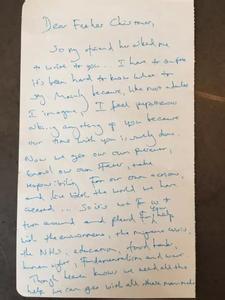 Dear Father Christmas,
So my friend has asked me
to write to you... I have to confess
it's been hard to know what to
say. Mainly because, like most adults
I imagine, I feel
asking anything of you because
our time with you is surely done.
Now we get our own presents,
our own
responsibility for our own actions,
and live with the world we have
created... So it's
turn around and plead for help
with the environment, the migrant crisis,
the NHS, education, food banks,
human rights, fundamentalism and war
Though heaven knows we need all the
help we can get with all these man-made